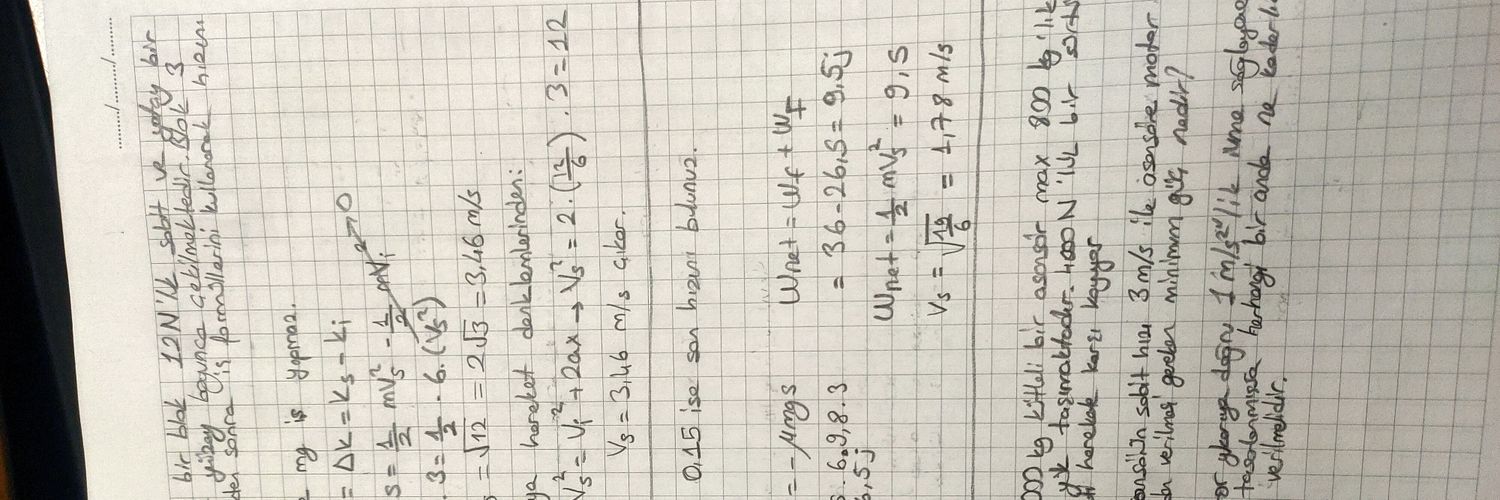 bir blok 12N'luk sabit ve yatay bir
yüzey boyunca çekilmektedir. Blok 3
den sonra iş formüllerini kullanarak hızını
mg iş yapmaz.
= ΔK = Ks - Ki
s = 1/2 mVs² - 1/2 mVi² → 0
. 3 = 1/2 . 6 . (Vs²)
= √12 = 2√3 = 3,46 m/s
ya hareket denklemlerinden:
Vs² = Vi² + 2ax → Vs² = 2 . (12/6) . 3 = 12
Vs = 3,46 m/s çıkar.
0,15 ise son hızını bulunuz.
= -μmgs
. 6 . 9,8 . 3
6,5 j
Wnet = Wf + WF
= 36 - 26,5 = 9,5 j
Wnet = 1/2 mVs² = 9,5
Vs = √19/6 = 1,78 m/s
000 kg kütleli bir asansör max 800 kg'lik
yük taşımaktadır. 4000 N'luk bir
hareketine karşı koyar
asansörün sabit hızı 3 m/s ile asansöre motor
verilmesi gereken minimum güç nedir?
yukarıya doğru 1 m/s²'lik ivme
tasarlanmışsa herhangi bir anda ne kadar
verilmelidir.